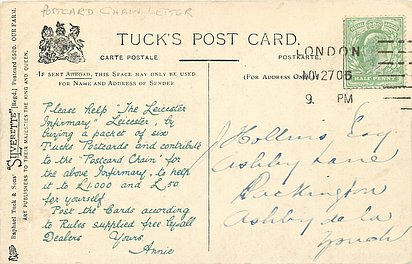 POSTCARD CHAIN LETTER
TUCK'S POST CARD.
CARTE POSTALE
POSTKARTE.
IF SENT ABROAD, THIS SPACE MAY ONLY BE USED
FOR NAME AND ADDRESS OF SENDER
(For Address Only)
Raphael Tuck & Sons' "SILVERETTE" [Regd.] Postcard 6520. OUR FARM.
ART PUBLISHERS TO THEIR MAJESTIES THE KING AND QUEEN.
Please help "The Leicester
Infirmary" Leicester, by
buying a packet of six
Tucks Postcards and contribute
to the "Postcard Chain" for
the above Infirmary, to help
it to £1.000 and £50
for yourself
Post the Cards acording
to Rules supplied free by all
Dealers Yours
Annie
LONDON
NOV 27 06
9. PM
HALF PENNY
Hollins Esq
Ashby Lane
Packington
Ashby de la
Zouch